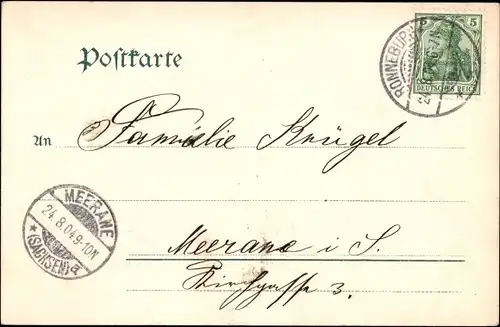 Postkarte
RONNEBURG
5
DEUTSCHES REICH
An Familie Krügel
MEERANE
24.8.04.9-10N
*(SACHSEN)a
Meerane i S.
3.